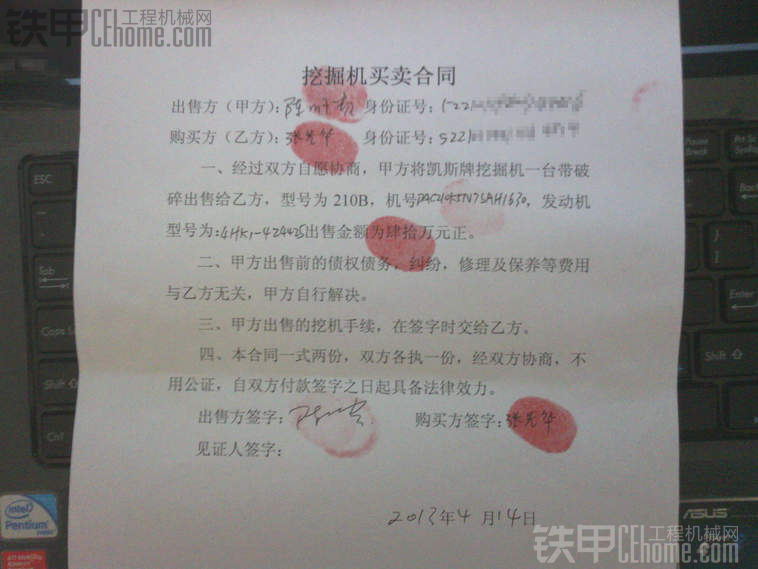 铁甲 工程机械网
CEhome.com
挖掘机买卖合同
出售方（甲方）： 身份证号：
购买方（乙方）：张光华 身份证号：5221
一、经过双方自愿协商，甲方将凯斯牌挖掘机一台带破
碎出售给乙方，型号为 210B，机号 ，发动机
型号为：4HK1-424425出售金额为肆拾万元正。
二、甲方出售前的债权债务，纠纷，修理及保养等费用
与乙方无关，甲方自行解决。
三、甲方出售的挖机手续，在签字时交给乙方。
四、本合同一式两份，双方各执一份，经双方协商，不
用公证，自双方付款签字之日起具备法律效力。
出售方签字： 购买方签字：张光华
见证人签字：
2013年4月14日
ESC
Tab
Caps Lock
Shift
Ctrl
Pause
Break
Enter
Shift
intel
Pentium
ASUS
铁甲 工程机械网
CEhome.com